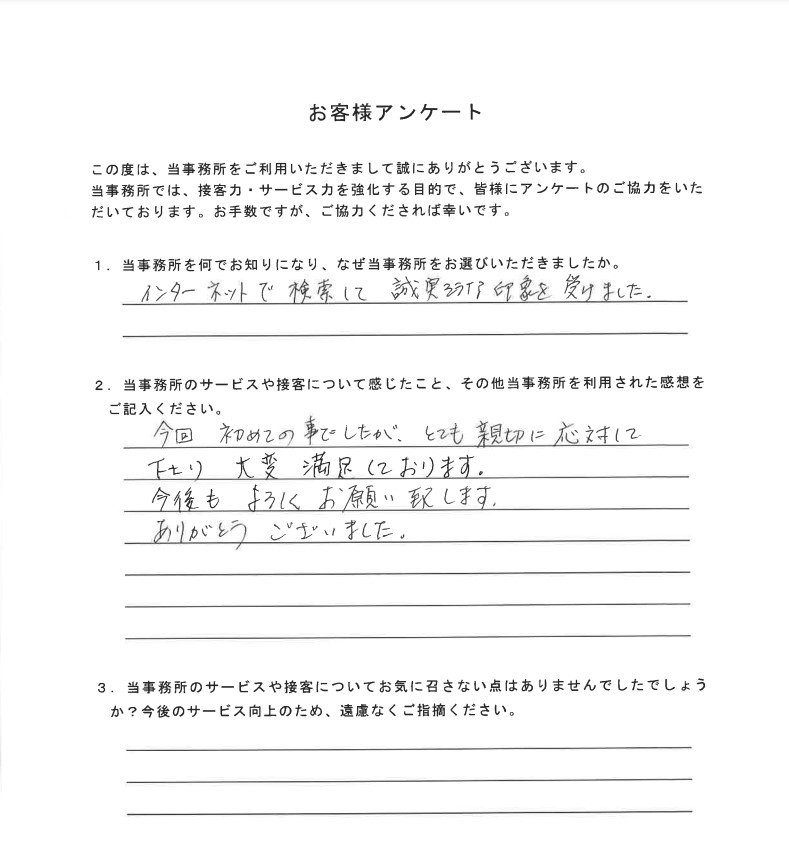 お客様アンケート
この度は、当事務所をご利用いただきまして誠にありがとうございます。
当事務所では、接客力・サービス力を強化する目的で、皆様にアンケートのご協力をいた
だいております。お手数ですが、ご協力くだされば幸いです。
１．当事務所を何でお知りになり、なぜ当事務所をお選びいただきましたか。
インターネットで 検索して 誠実そうな 印象を 受けました。
２．当事務所のサービスや接客について感じたこと、その他当事務所を利用された感想を
ご記入ください。
今回 初めての事でしたが、とても 親切に 応対して
下さり 大変 満足しております。
今後も よろしく お願い 致します。
ありがとう ございました。
３．当事務所のサービスや接客についてお気に召さない点はありませんでしたでしょう
か？今後のサービス向上のため、遠慮なくご指摘ください。